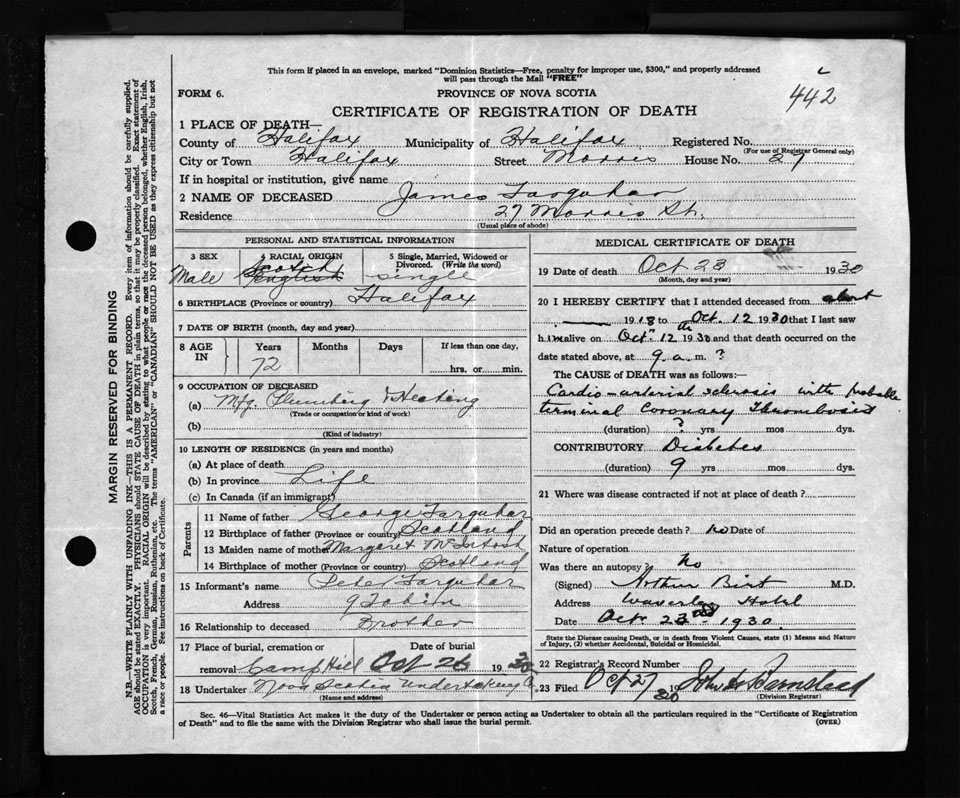 This form if placed in an envelope, marked "Dominion Statistics—Free, penalty for improper use, $300," and properly addressed
will pass through the Mail "FREE"
442
FORM 6.
PROVINCE OF NOVA SCOTIA
CERTIFICATE OF REGISTRATION OF DEATH
1 PLACE OF DEATH—
County of Halifax Municipality of Halifax Registered No.
(For use of Registrar General only)
City or Town Halifax Street Morris House No. 27
If in hospital or institution, give name
2 NAME OF DECEASED James Farquhar
Residence 27 Morris St.
(Usual place of abode)
PERSONAL AND STATISTICAL INFORMATION
3 SEX
Male
4 RACIAL ORIGIN
Scotch
English
5 Single, Married, Widowed or Divorced. (Write the word)
single
6 BIRTHPLACE (Province or country) Halifax
7 DATE OF BIRTH (month, day and year)
8 AGE IN
Years
72
Months
Days
If less than one day,
hrs. or min.
9 OCCUPATION OF DECEASED
(a) Mfg. Plumbing & Heating
(Trade or occupation or kind of work)
(b)
(Kind of industry)
10 LENGTH OF RESIDENCE (in years and months)
(a) At place of death
(b) In province Life
(c) In Canada (if an immigrant)
Parents
11 Name of father George Farquhar
12 Birthplace of father (Province or country) Scotland
13 Maiden name of mother Margaret McIntosh
14 Birthplace of mother (Province or country) Scotland
15 Informant's name Peter Farquhar
Address 9 Tobin
16 Relationship to deceased Brother
17 Place of burial, cremation or Date of burial
removal Camp Hill Oct 26 1930
18 Undertaker Nova Scotia Undertaking Co
(Name and address)
MEDICAL CERTIFICATE OF DEATH
19 Date of death Oct 23 1930
(Month, day and year)
20 I HEREBY CERTIFY that I attended deceased from about
1918 to Oct. 12 1930 that I last saw
him alive on Oct. 12th 1930 and that death occurred on the
date stated above, at 9 a. m. ?
The CAUSE of DEATH was as follows:
Cardio-arterial sclerosis with probable
terminal Coronary Thrombosis
(duration) ? yrs mos dys.
CONTRIBUTORY Diabetes
(duration) 9 yrs mos dys.
21 Where was disease contracted if not at place of death?
Did an operation precede death? no Date of
Nature of operation
Was there an autopsy? No
(Signed) Birt M.D.
Address Waverley Hotel
Date Oct. 23rd 1930.
State the Disease causing Death, or in death from Violent Causes, state (1) Means and Nature
of Injury, (2) whether Accidental, Suicidal or Homicidal.
22 Registrar's Record Number
23 Filed Oct 27 1930
(Division Registrar)
Sec. 46—Vital Statistics Act makes it the duty of the Undertaker or person acting as Undertaker to obtain all the particulars required in the "Certificate of Registration
of Death" and to file the same with the Division Registrar who shall issue the burial permit. (OVER)
MARGIN RESERVED FOR BINDING
N.B.—WRITE PLAINLY WITH UNFADING INK—THIS IS A PERMANENT RECORD. Every item of information should be carefully supplied.
AGE should be stated EXACTLY. PHYSICIANS should STATE CAUSE OF DEATH in plain terms, so that it may be properly classified. Exact statement of
OCCUPATION is very important. RACIAL ORIGIN will be described by stating to what people or race the deceased person belonged, whether English, Irish,
Scotch, French, German, Russian, Ruthenian, etc. The terms "AMERICAN" or "CANADIAN" SHOULD NOT BE USED as they express citizenship but not
a race or people. See instructions on back of Certificate.